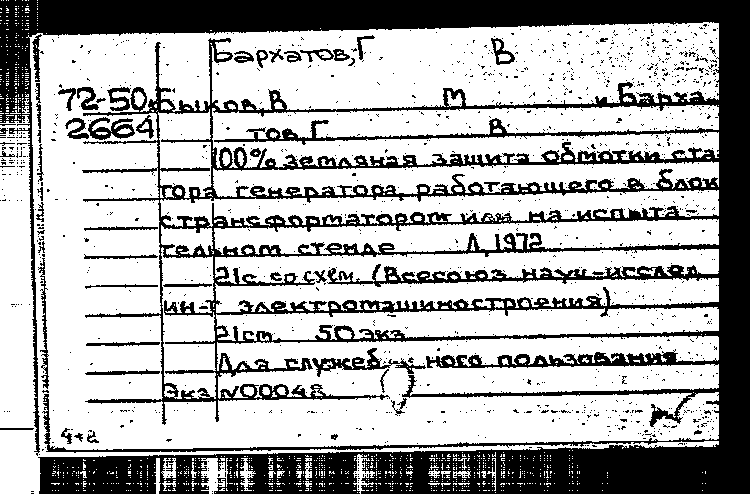 Бархатов,Г В
72-50 Быков,В М и Барха
2664 тов,Г В
100% земляная защита обмотки ста
тора генератора, работающего в блок
с трансформатором или на испыта-
тельном стенде Л,1972
21с. со схем. (Всесоюз науч-исслед
ин-т электромашиностроения)
21ст. 50экз
Для служеб ного пользования
Экз N00048
4+2